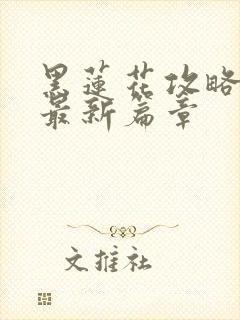 黑莲花攻略
最新篇章
文推社